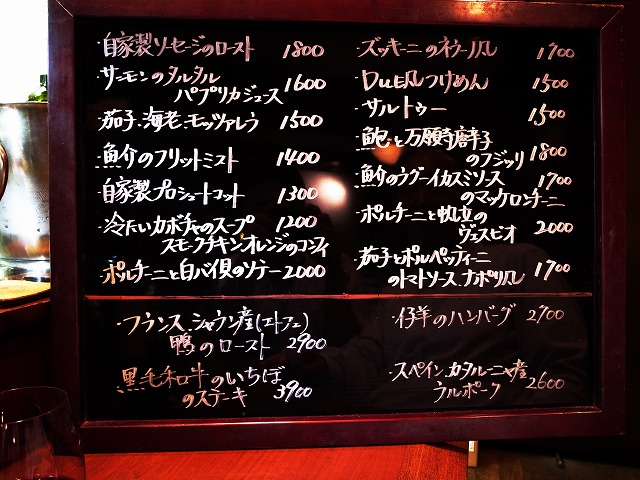 ・自家製ソーセージのロースト 1800
・サーモンのタルタル
パプリカジュース 1600
・茄子、海老、モッツァレラ 1500
・魚介のフリットミスト 1400
・自家製プロシュートコット 1300
・冷たいカボチャのスープ 1200
スモークチキンオレンジのコンフィ
・ポルチーニと白バイ貝のソテー 2000
・ズッキーニのネラーノ風 1700
・DUE風つけめん 1500
・サルトゥー 1500
・鮑と万願寺唐辛子
のフジッリ 1800
・魚介のラグーイカスミソース 1700
のマッケロンチーニ
・ポルチーニと帆立の
ヴェスビオ 2000
・茄子とポルペッティーニ
のトマトソース、ナポリ風 1700
・フランス、シャラン産(エトフェ)
鴨のロースト 2900
・黒毛和牛のいちぼ
のステーキ 3900
・仔羊のハンバーグ 2700
・スペイン、カタルーニャ産
ラルポーク 2600